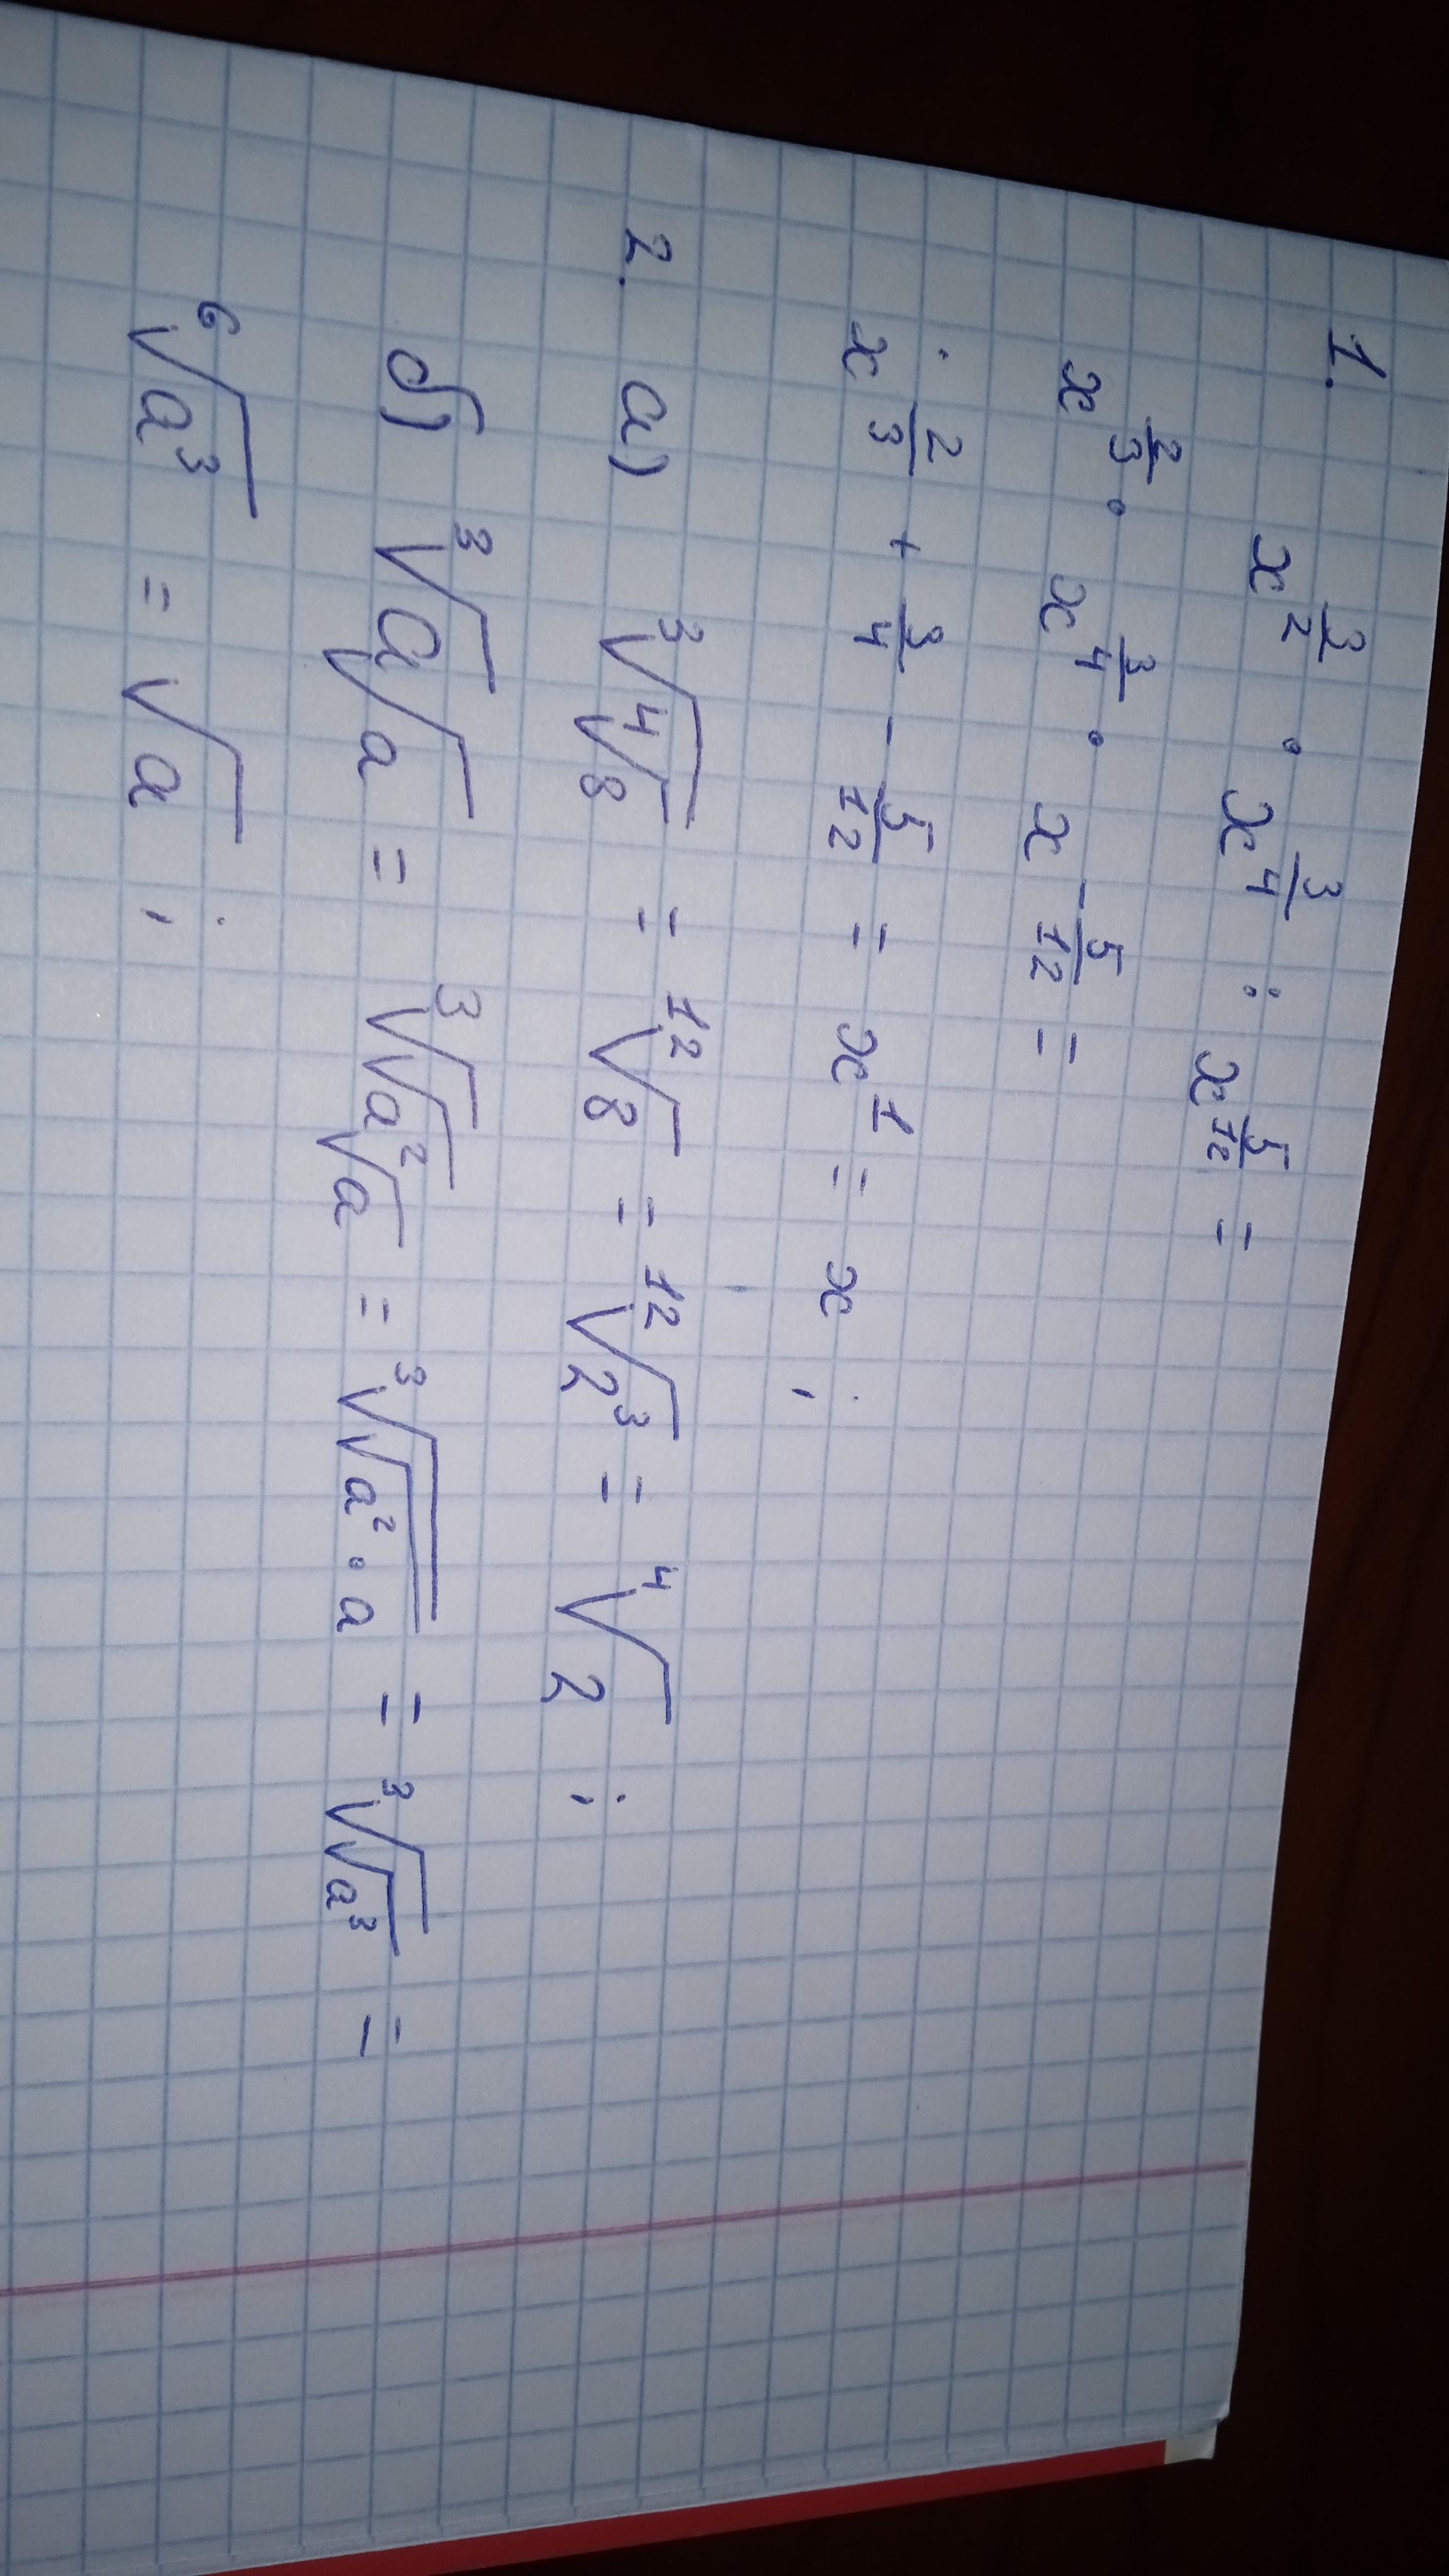 1.
x^(3/2) · x^(3/4) : x^(5/12) =
x^(2/3) · x^(3/4) · x^(-5/12) =
x^(2/3 + 3/4 - 5/12) = x^1 = x ;
2. а) ∛(∜8) = ¹²√8 = ¹²√(2³) = ∜2 ;
б) ∛(a√a) = ∛(√a²√a) = ∛(√(a² · a)) = ∛(√a³) =
⁶√(a³) = √a ;